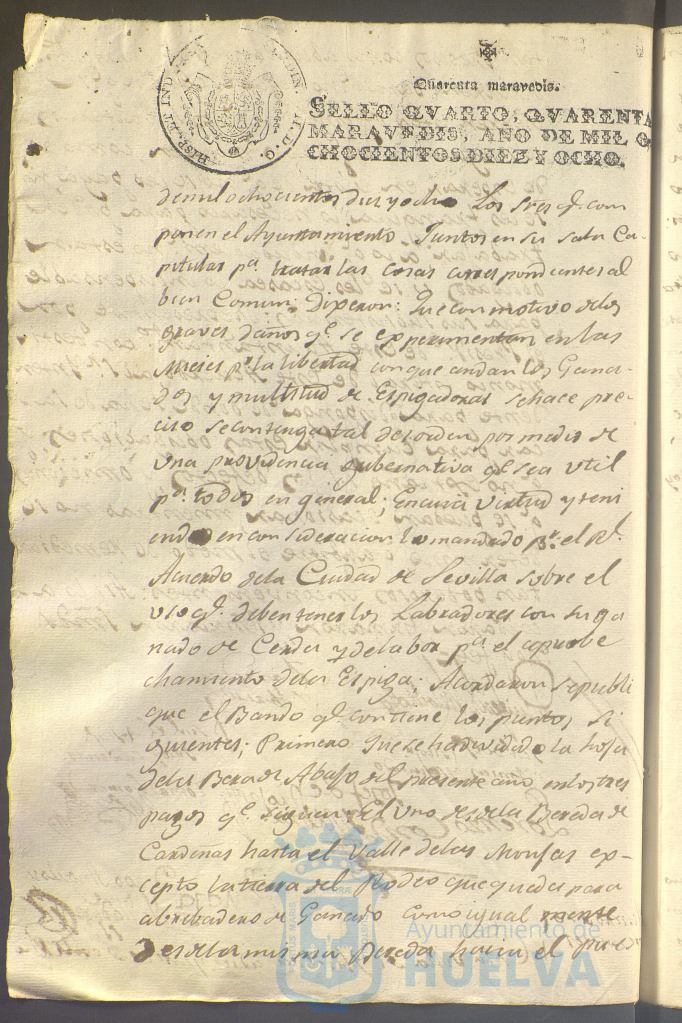 HISP. ET IND
Quarenta maravedis.
SELLO QVARTO, QVARENTA
MARAVEDIS, AÑO DE MIL O
CHOCIENTOS DIEZ Y OCHO.
demil ochocientos diez y ocho Los Sres q.e com
ponen el Ayuntamiento Juntos en su sala Ca-
pitular p.a tratar las cosas correspondientes al
bien Comun; Dixeron: Que con motivo delos
graves daños q.e se experimentan en las
Mieses p.r la libertad con que andan los Gana-
dos y multitud de Espigadoras se hace pre-
ciso se contenga tal desorden por medio de
una providencia gubernativa q.e sea util
p.a todos en general; En cuia virtud y teni
endo en consideracion lo mandado p.r el R.l
Acuerdo dela Ciudad de Sevilla sobre el
uso q.e deben tener los Labradores con su ga
nado de Cerda y delabor p.a el aprobe
chamiento dela Espiga; Acordaron se publi
que el Bando q.e contiene los puntos si
guientes; Primero Que se ha dividido la hoja
dela Bera de Abajo del presente año, en los tres
pagos q.e siguen; El uno desdela Bereda de
Cardeñas hasta el Valle delas Monjas ex-
cepto la tierra del Rodeo que queda para
abrebadero de Ganado como igual mente
Desde la misma Bereda hacia el
Ayuntamiento de
HUELVA